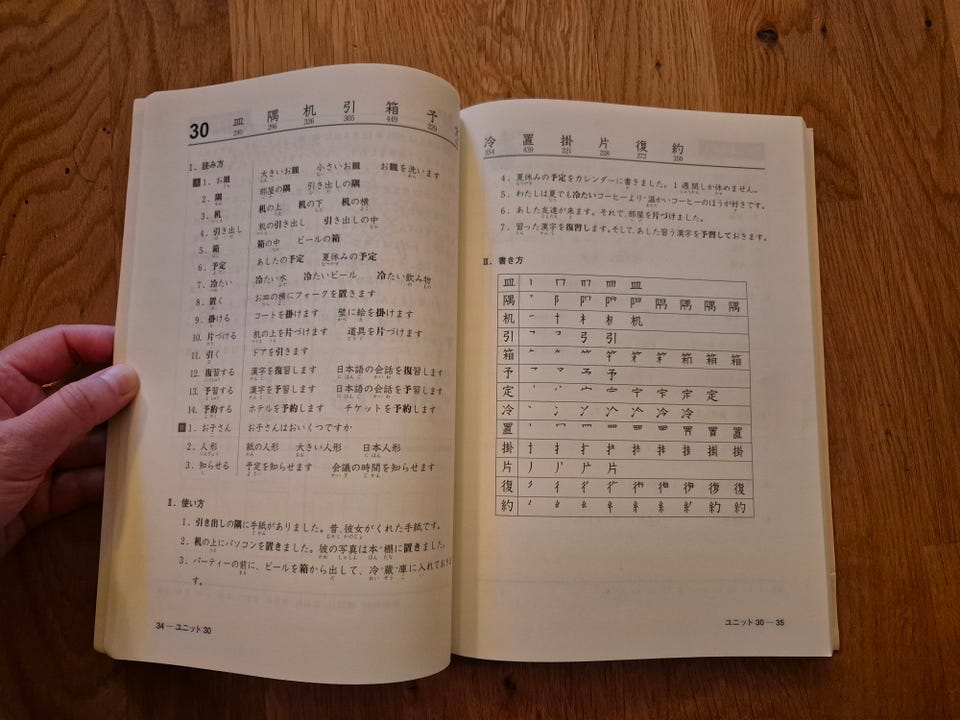 30 皿 隅 机 引 箱 予
240 296 326 305 449 229
I．読み方
1．お皿 大きいお皿 小さいお皿 お皿を洗います
2．隅 部屋の隅 引き出しの隅
3．机 机の上 机の下 机の横
4．引き出し 机の引き出し 引き出しの中
5．箱 箱の中 ビールの箱
6．予定 あしたの予定 夏休みの予定
7．冷たい 冷たい水 冷たいビール 冷たい飲み物
8．置く お皿の横にフォークを置きます
9．掛ける コートを掛けます 壁に絵を掛けます
10．片づける 机の上を片づけます 道具を片づけます
11．引く ドアを引きます
12．復習する 漢字を復習します 日本語の会話を復習します
13．予習する 漢字を予習します 日本語の会話を予習します
14．予約する ホテルを予約します チケットを予約します
1．お子さん お子さんはおいくつですか
2．人形 紙の人形 大きい人形 日本人形
3．知らせる 予定を知らせます 会議の時間を知らせます
II．使い方
1．引き出しの隅に手紙がありました。昔、彼女がくれた手紙です。
2．机の上にパソコンを置きました。彼の写真は本棚に置きました。
3．パーティーの前に、ビールを箱から出して、冷蔵庫に入れておきま
す。
34 — ユニット 30
冷 置 掛 片 復 約
254 439 321 228 272 350
4．夏休みの予定をカレンダーに書きました。1週間しか休めません。
5．わたしは夏でも冷たいコーヒーより温かいコーヒーのほうが好きです。
6．あした友達が来ます。それで、部屋を片づけました。
7．習った漢字を復習します。そして、あした習う漢字を予習しておきます。
III．書き方
皿
隅
机
引
箱
予
定
冷
置
掛
片
復
約
ユニット 30 — 35